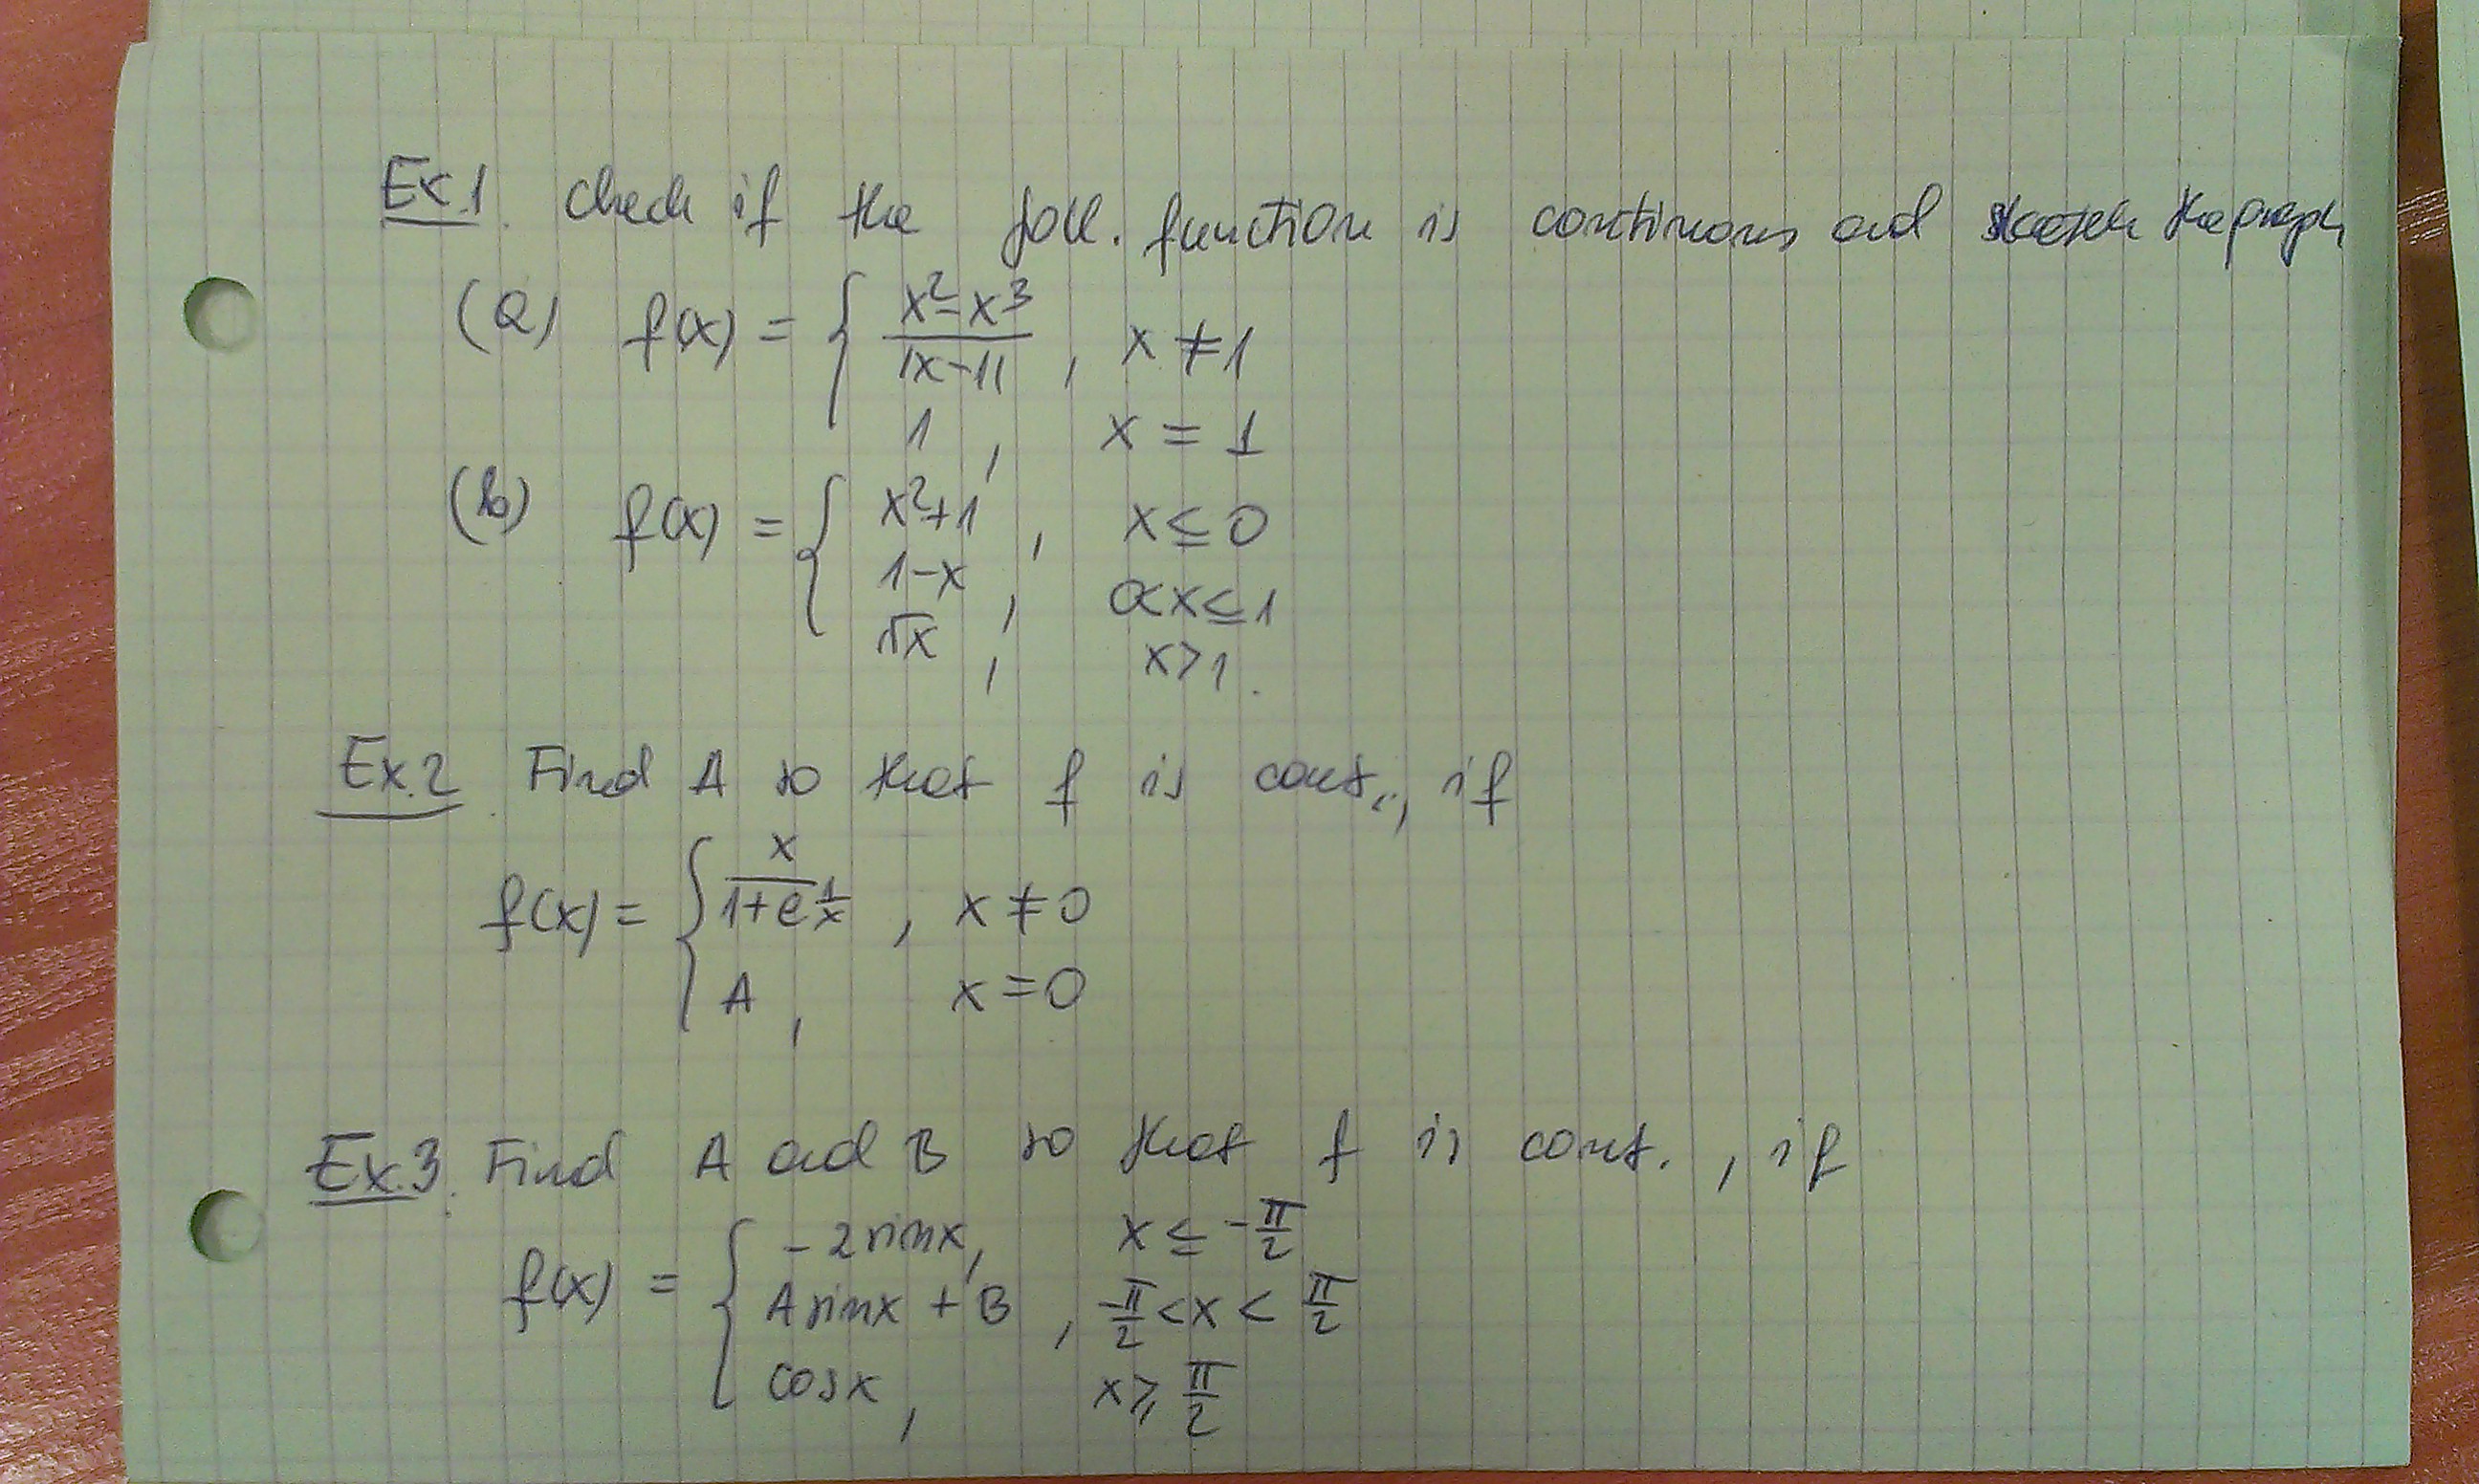 Ex.1. Check if the foll. function is continuous and sketch the graph
(a) f(x) = { x²-x³ / |x-1| , x ≠ 1
1 , x = 1
(b) f(x) = { x²+1 , x ≤ 0
1-x , 0<x≤1
√x , x>1.
Ex.2. Find A so that f is cont., if
f(x) = { x / 1+e^(1/x) , x ≠ 0
A , x = 0
Ex.3. Find A and B so that f is cont. , if
f(x) = { -2 sin x, x ≤ -π/2
A sin x + B , -π/2 < x < π/2
cos x , x ≥ π/2